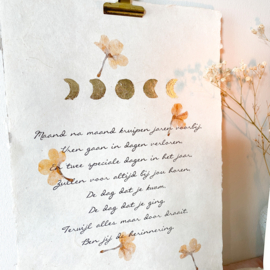 Maand na maand kruipen jaren voorbij.
Uren gaan in dagen verloren.
En twee speciale dagen in het jaar
Zullen voor altijd bij jou horen.
De dag dat je kwam.
De dag dat je ging.
Terwijl alles maar door draait.
Ben jij de herinnering.